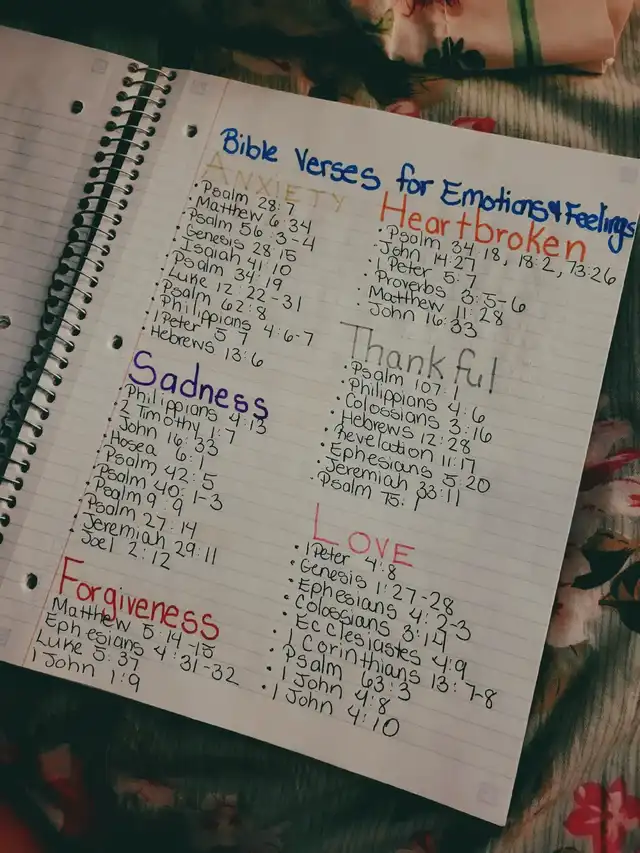 Bible Verses for Emotions & Feelings
ANXIETY
• Psalm 28:7
• Matthew 6:34
• Psalm 56:3-4
• Genesis 28:15
• Isaiah 41:10
• Psalm 34:19
• Luke 12:22-31
• Psalm 62:8
• Philippians 4:6-7
• 1 Peter 5:7
• Hebrews 13:6
Sadness
• Philippians 4:13
• 2 Timothy 1:7
• John 16:33
• Hosea 6:1
• Psalm 42:5
• Psalm 40:1-3
• Psalm 9:9
• Psalm 27:14
• Jeremiah 29:11
• Joel 2:12
Forgiveness
Matthew 5:14-15
Ephesians 4:31-32
Luke 5:37
1 John 1:9
Heartbroken
• Psalm 34:18, 18:2, 73:26
• John 14:27
• 1 Peter 5:7
• Proverbs 3:5-6
• Matthew 11:28
• John 16:33
Thankful
• Psalm 107:1
• Philippians 4:6
• Colossians 3:16
• Hebrews 12:28
• Revelation 11:17
• Ephesians 5:20
• Jeremiah 33:11
• Psalm 75:1
LOVE
• 1 Peter 4:8
• Genesis 1:27-28
• Ephesians 4:2-3
• Colossians 3:14
• Ecclesiastes 4:9
• 1 Corinthians 13:7-8
• Psalm 63:3
• 1 John 4:8
• 1 John 4:10